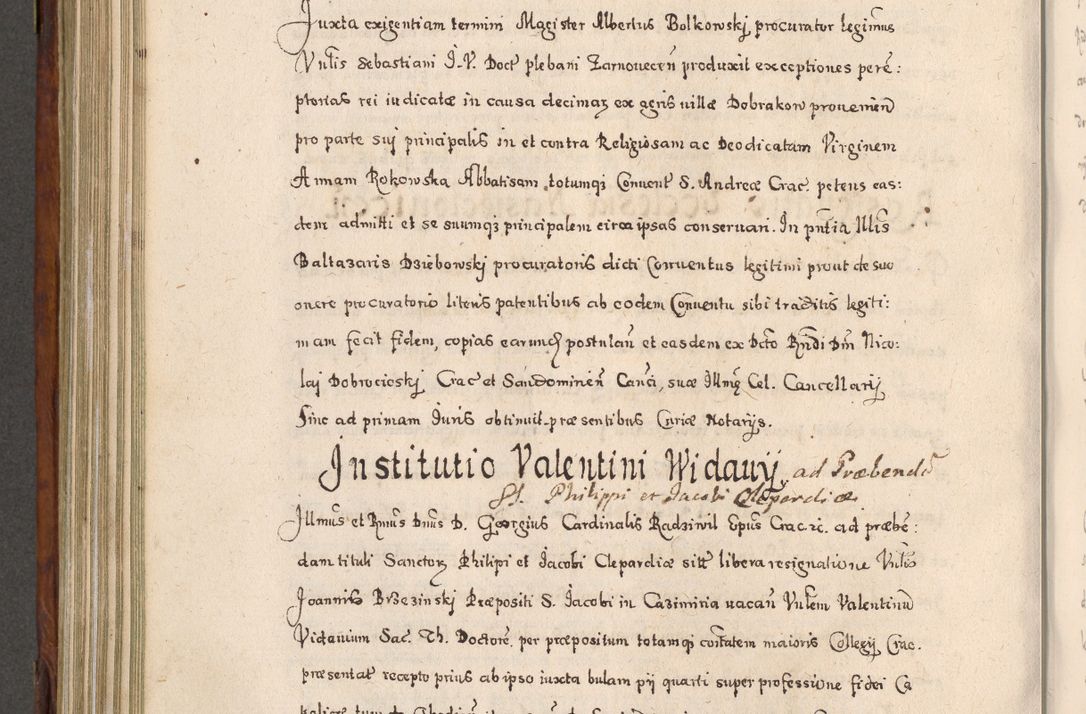 Juxta exigentiam termini Magister Albertus Bolkowskj procurator legimus
Vnlis Sebastiani J. V. Doct plebani Zarnowecen produxit exceptiones perē:
ptorias rei iudicatæ in causa decimaȝ ex agris villæ Dobrakow prouenien
pro parte suj principalis in et contra Religiosam ac Deodicatam Virginem
Annam Rokowska Abbatisam totumqȝ Conuent S. Andreæ Crac. petens eas:
dem admitti et se suumqȝ principalem circa ipsas conseruari. In pntia Illis
Baltazaris Dziebowskj procuratoris dicti Conuentus legitimi prout de suo
onere procuratorio literis patentibus ab eodem Conuentu sibi traditis legiti:
mam fecit fidem, copias earund postulan et easdem ex Dcto Rndi Dm Nico:
laj Dobrocieskj Crac et Sandominen Canci, suæ Illmę Cel. Cancellarij
Sinc ad primam Juris obtinuit præsentibus Curiæ Notarijs.
Institutio Valentini Widauij, ad Præbendā
St. Philippi et Jacobi Clepardiæ
Illmus et Rmus Dnus D. Georgius Cardinalis Radziwil Epus Crac. ꝛc. ad præbe:
dam tituli Sanctorȝ Philipi et Jacobi Clepardiæ sitt libera resignatione Vnlis
Joannis Brzezinskj Præpositi S. Jacobi in Cazimiria vacan Vnlem Valentinū
Vidauium Sac. Th. Doctorē. per præpositum totamqȝ coītatem maioris Collegij Crac.
præsentat recepto prius ab ipso iuxta bulam pij quarti super professione fidei Ca